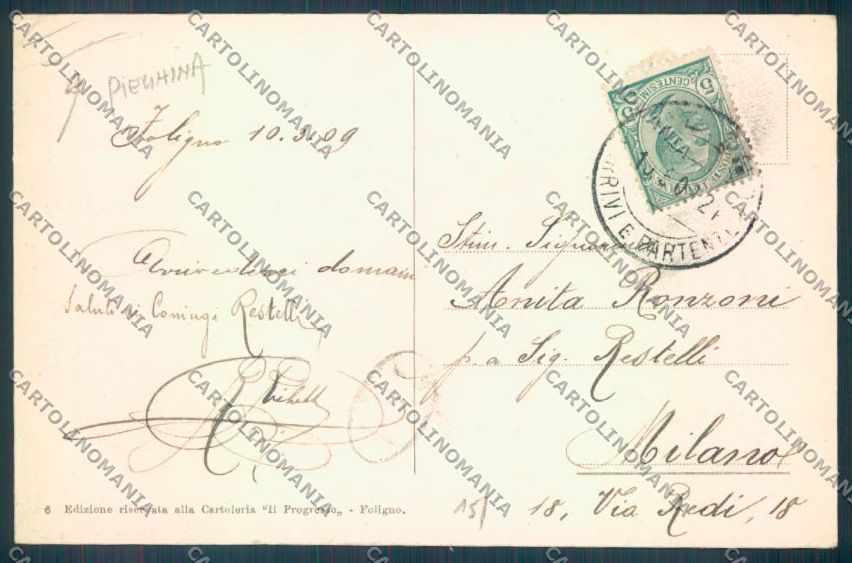 PIEGHINA
Foligno 10.3.09
Arrivederci domani
Saluti ai Coniugi Restelli
CENTESIMI
ARRIVI E PARTENZE
Stim. Signorina
Anita Ronzoni
p. a Sig. Restelli
Milano
18, Via Redi, 18
15/
6 Edizione riservata alla Cartoleria "Il Progresso„ - Foligno.
CARTOLINOMANIA